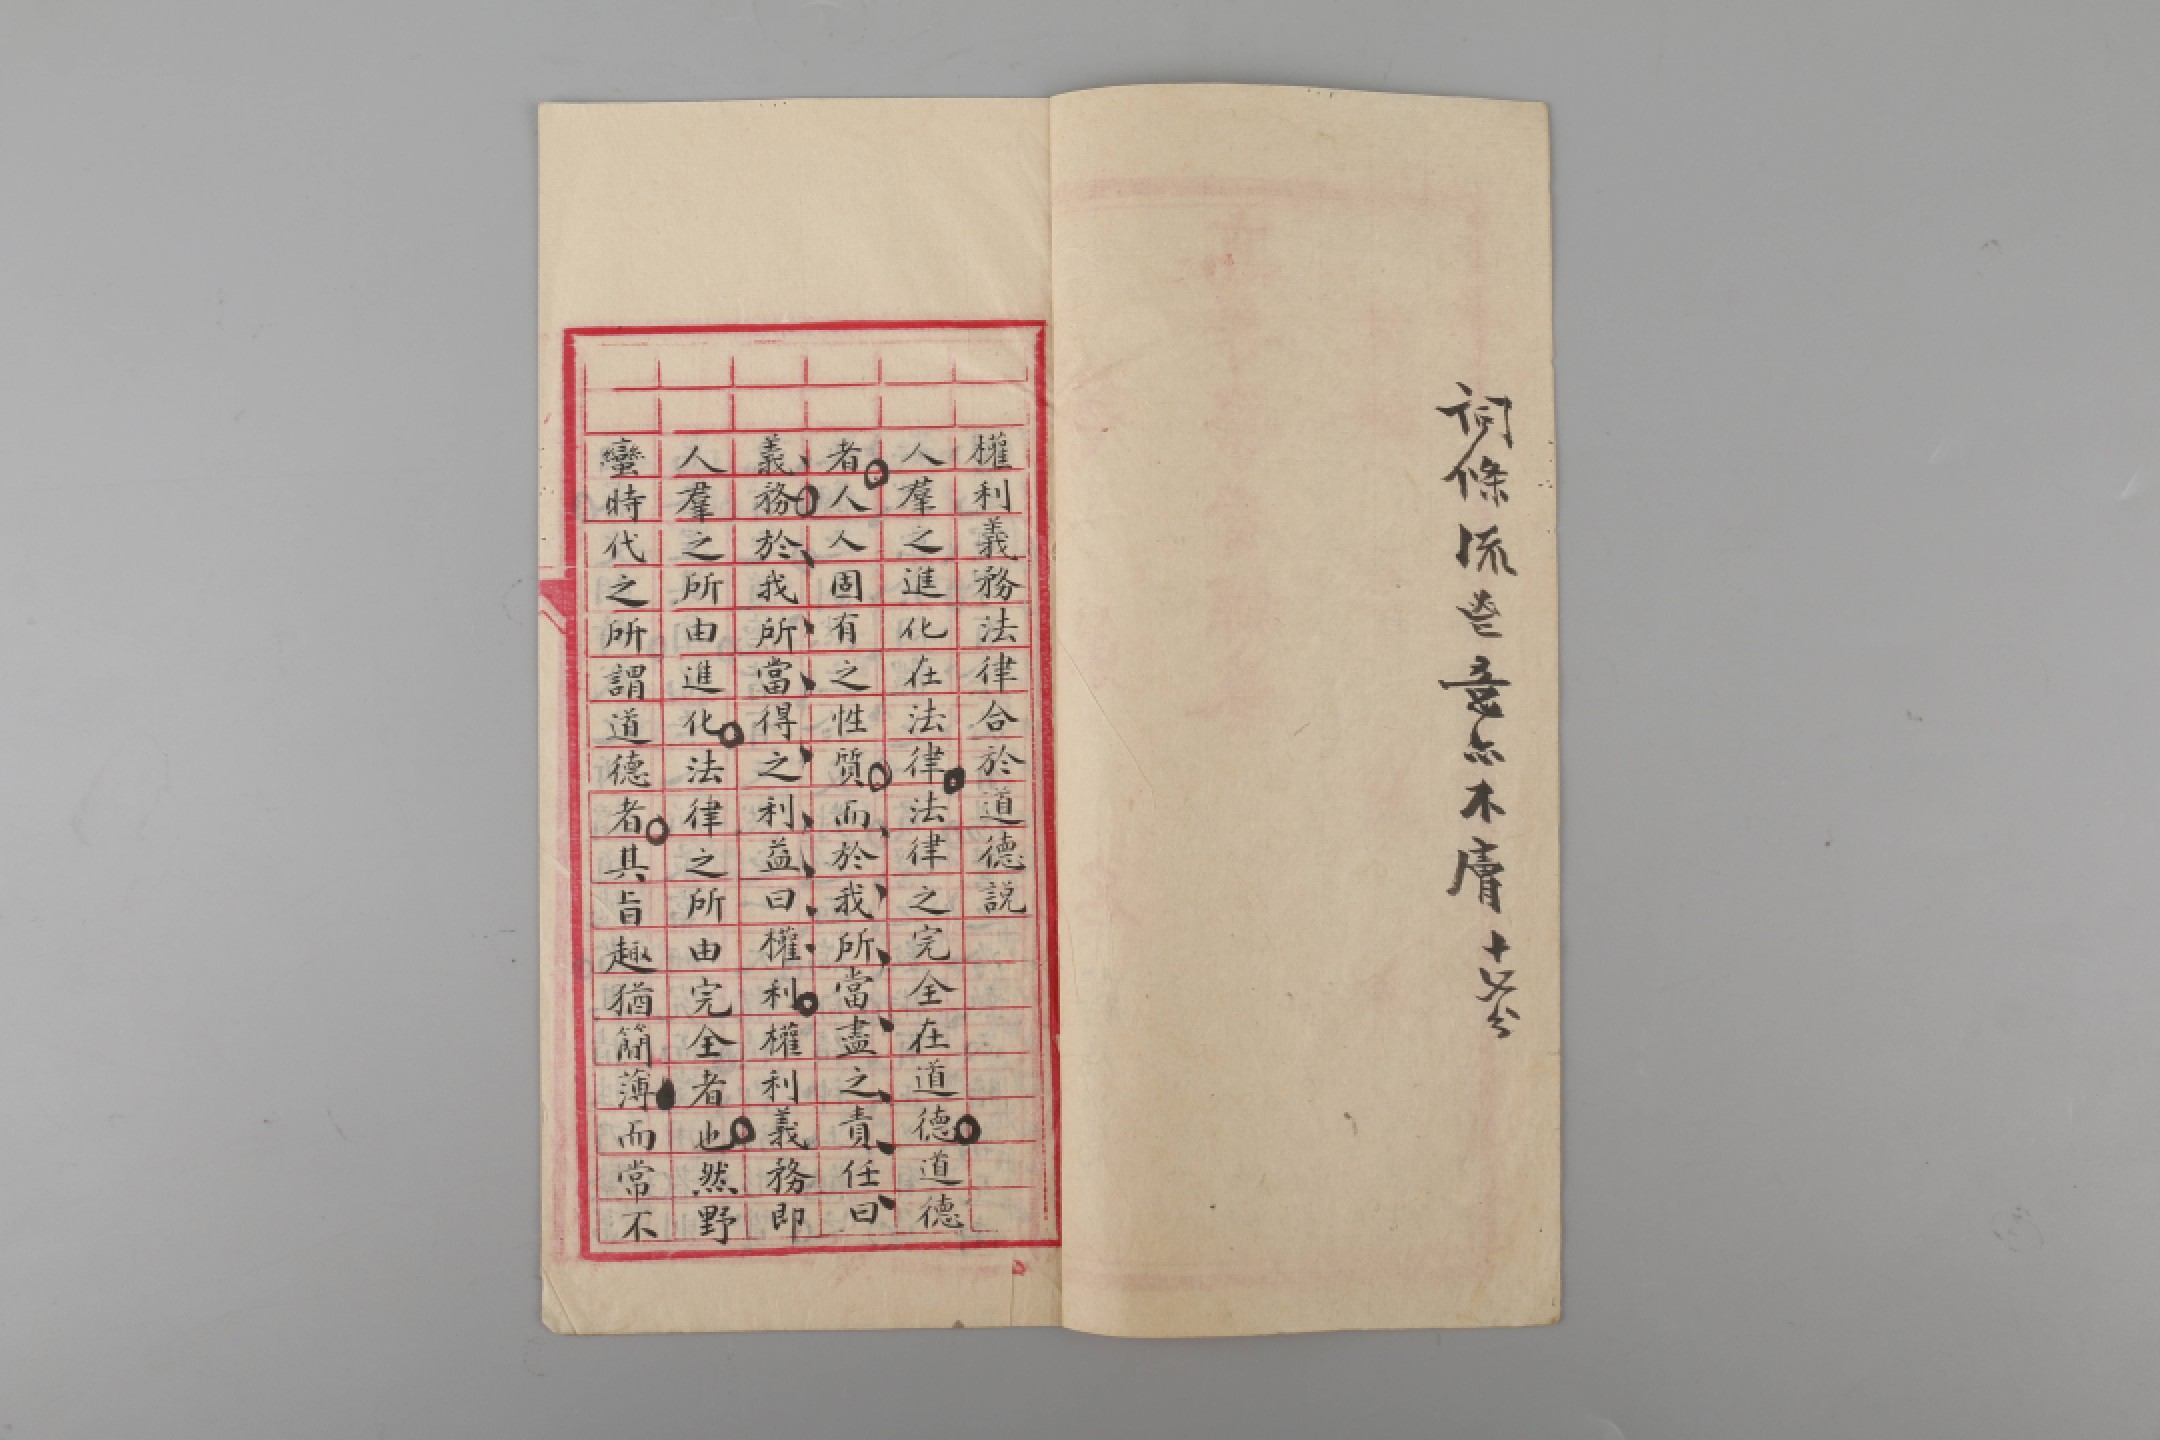 詞條流鬯意亦不膚 十分
權利義務法律合於道德説
人羣之進化在法律法律之完全在道德道德
者人人固有之性質而於我所當盡之責任曰
義務於我所當得之利益曰權利權利義務即
人羣之所由進化法律之所由完全者也然野
蠻時代之所謂道德者其旨趣猶簡薄而常不